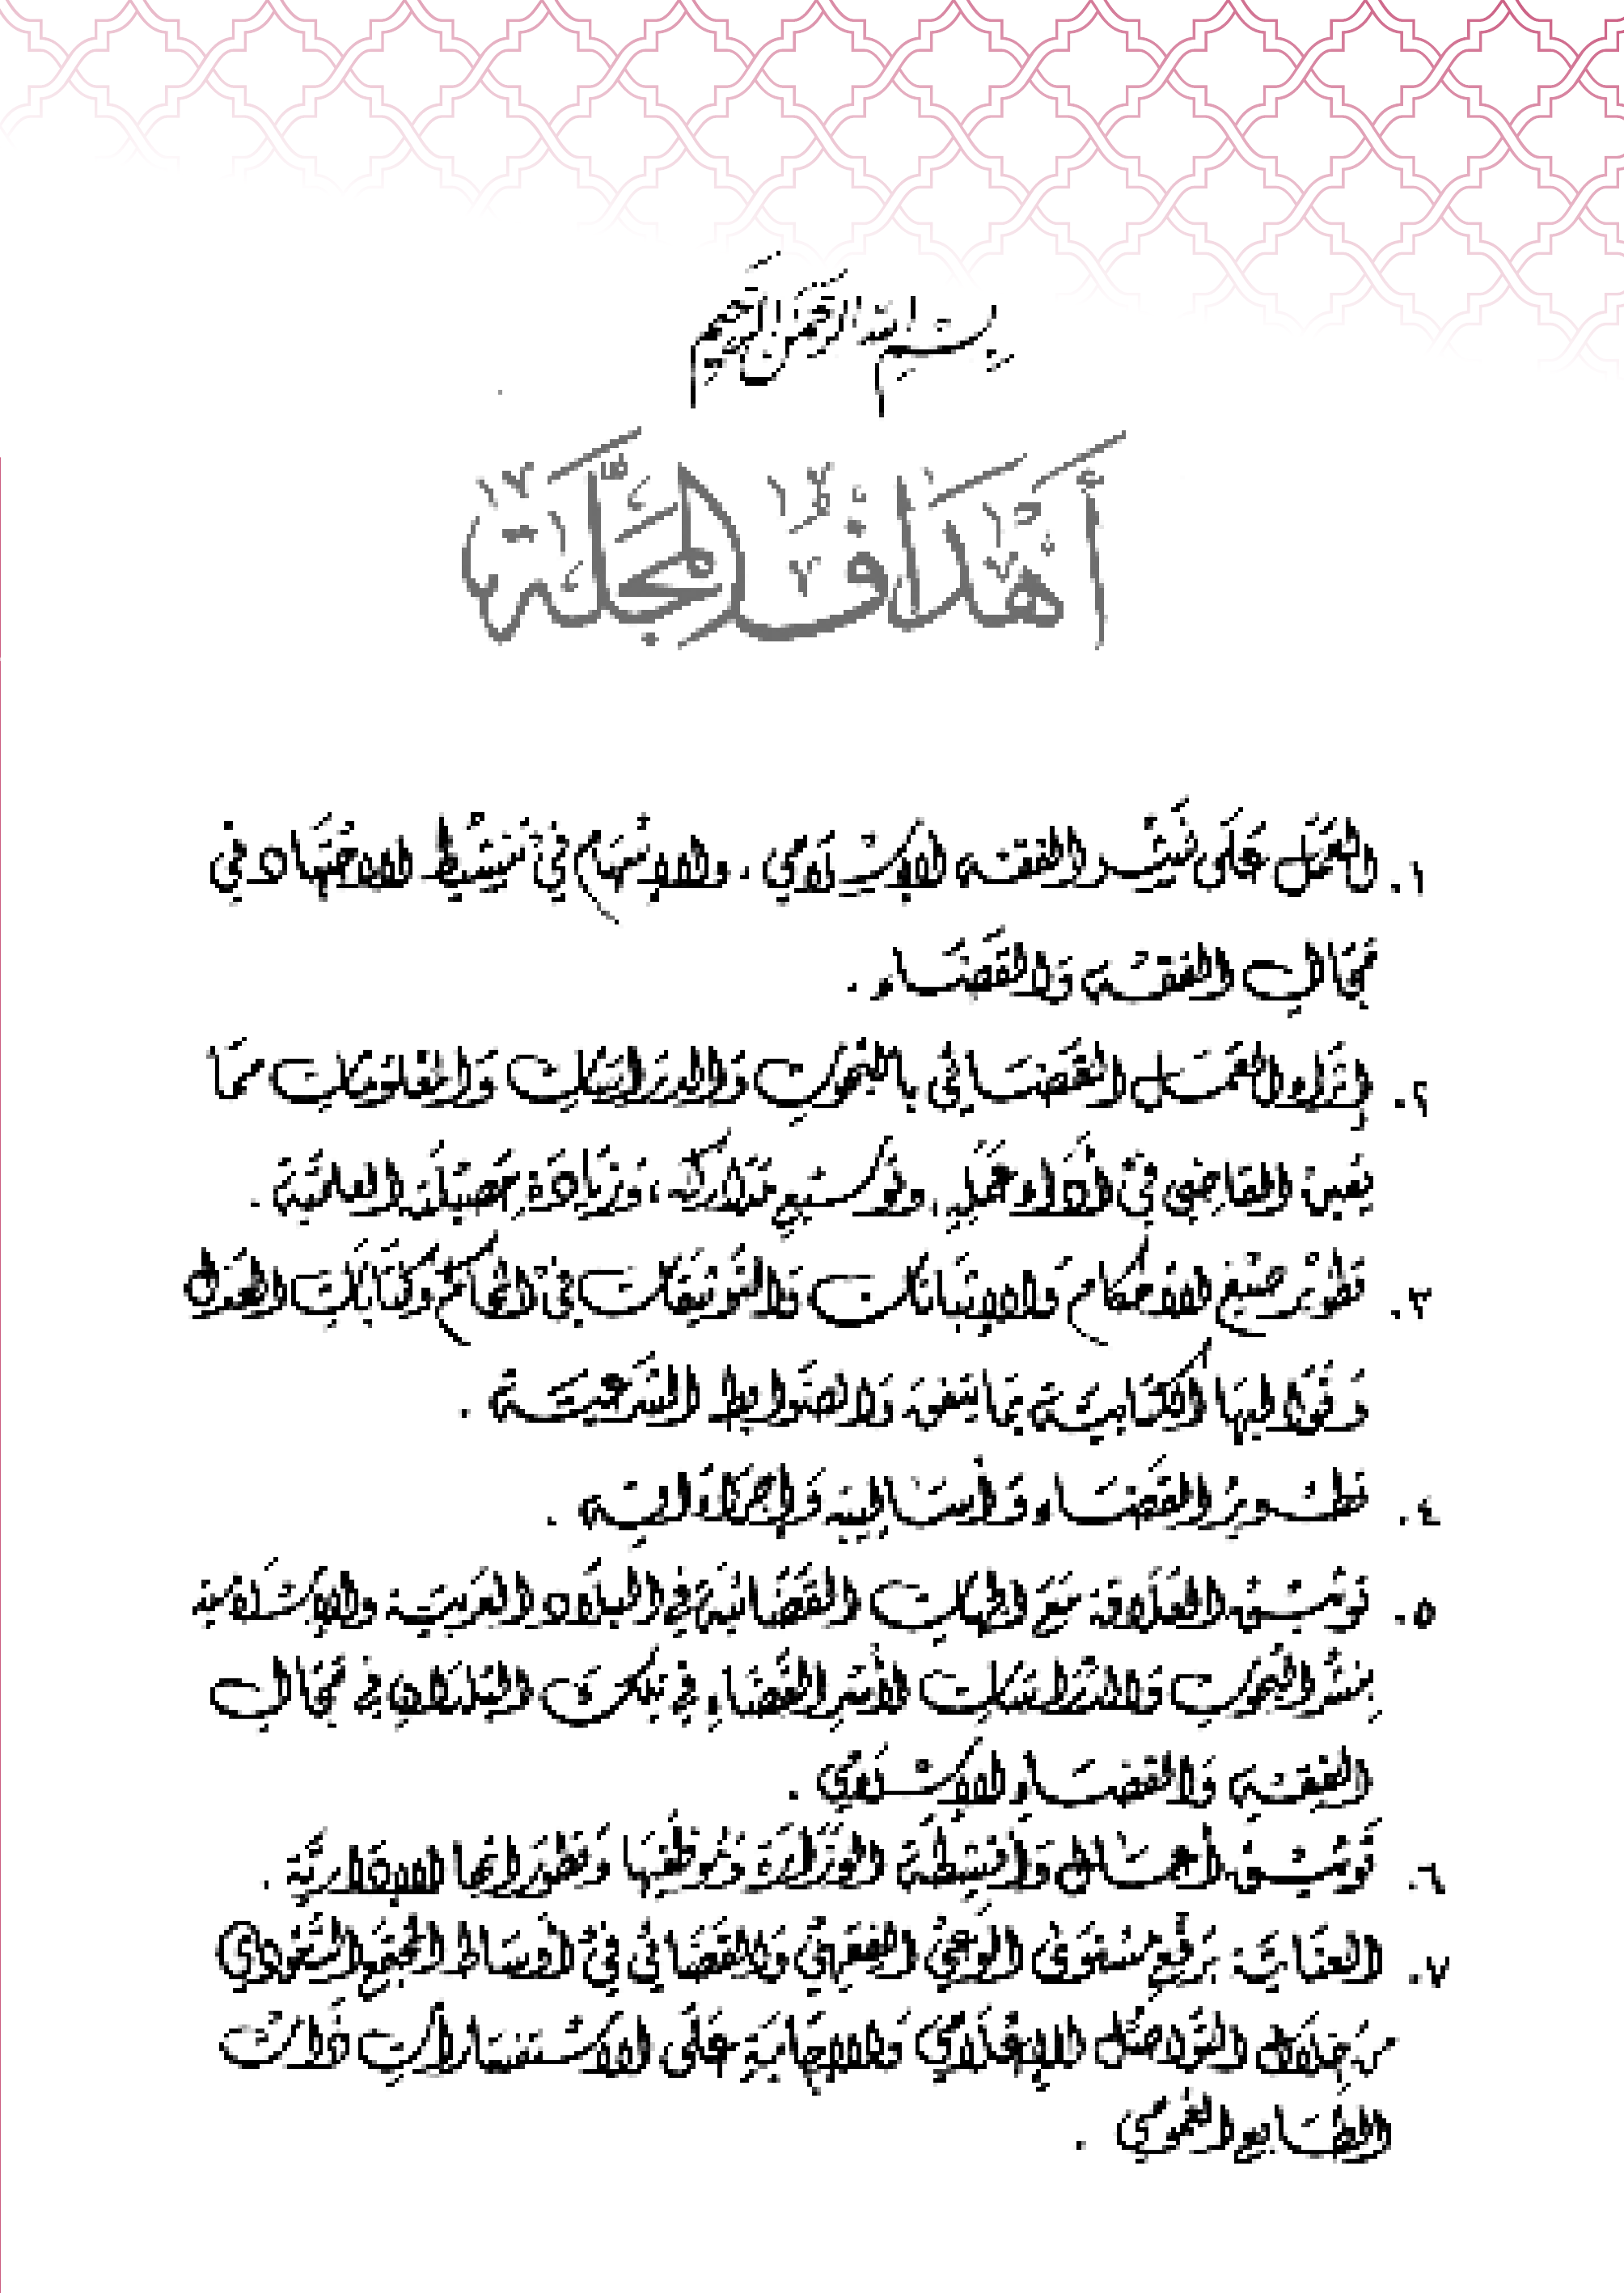 بسم الله الرحمن الرحيم
أهداف المجلة
١. العمل على نشر الفقه الإسلامي ، والإسهام في تنشيط الاجتهاد في
مجال الفقه والقضاء .
٢. إثراء العمل القضائي بالبحوث والدراسات والمعلومات مما
يعين القاضي في أداء عمله ، وتوسيع مداركه ، وزيادة حصيلته العلمية .
٣. تطوير صيغ الأحكام والإثباتات والتوثيقات في المحاكم وكتابات العدل
وقوالبها الكتابية بما يتفق والضوابط الشرعية .
٤. تطوير القضاء وأساليبه وإجراءاته .
٥. توثيق العلاقة مع الجهات القضائية في البلاد العربية والإسلامية
بنشر البحوث والدراسات لأسر القضاء في تلك البلدان في مجال
الفقه والقضاء الإسلامي .
٦. توثيق أعمال وأنشطة الوزارة وموظفيها وتطوراتها الإدارية .
٧. العناية برفع مستوى الوعي الفقهي والقضائي في أوساط المجتمع السعودي
من خلال التواصل الإعلامي والإجابة على الاستفسارات ذات
الطابع العمومي .